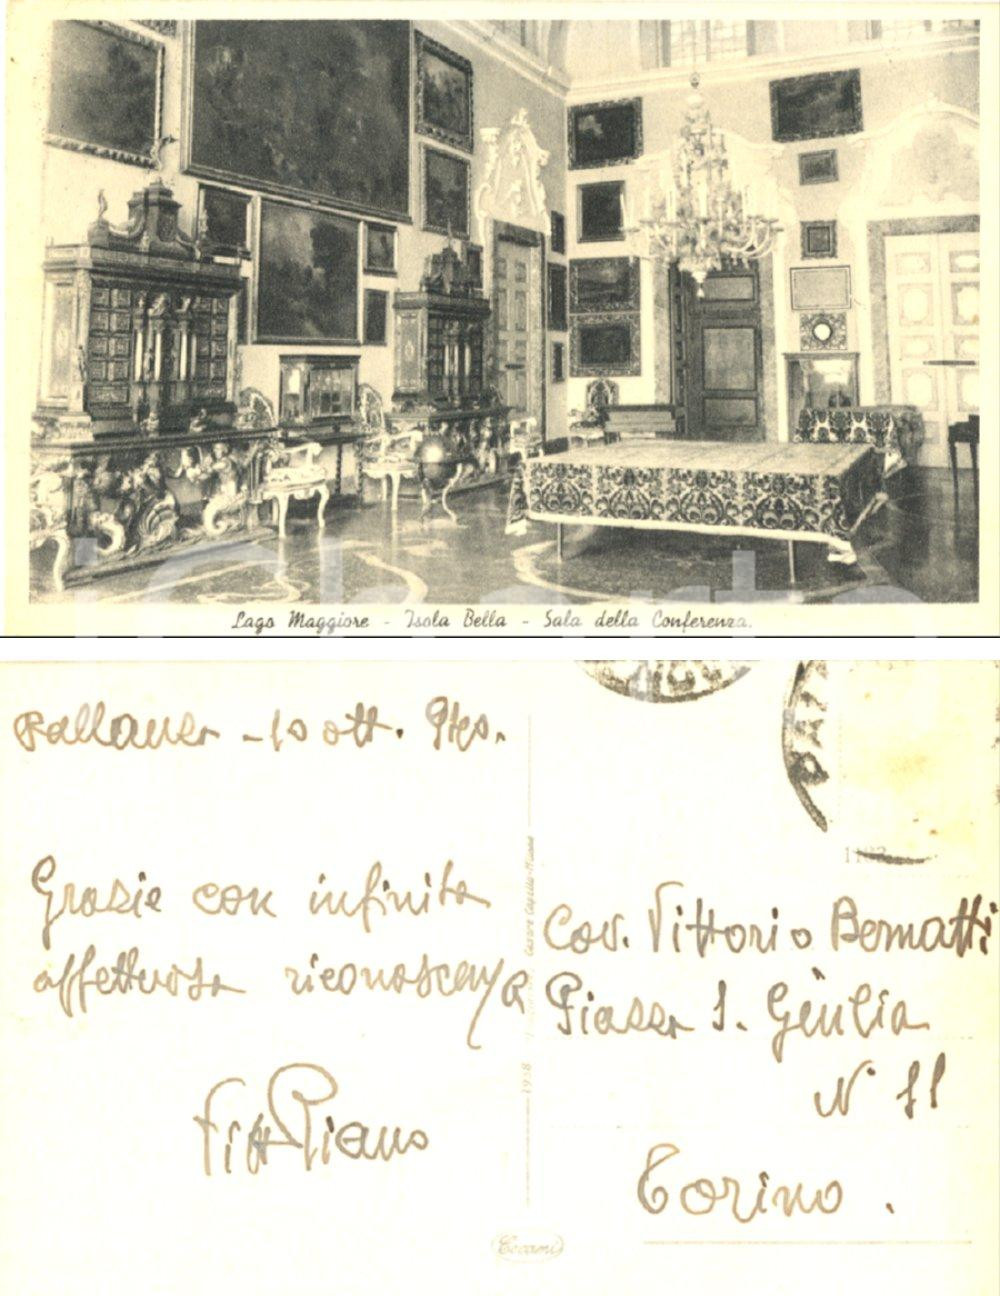 Lago Maggiore - Isola Bella - Sala della Conferenza.
Pallanza - 10 ott. 940.
Grazie con infinita
affettuosa riconoscenza
Piano
Cav. Vittorio Bernatti
Piazza S. Giulia
N° 11
Torino.
1938
Cecami